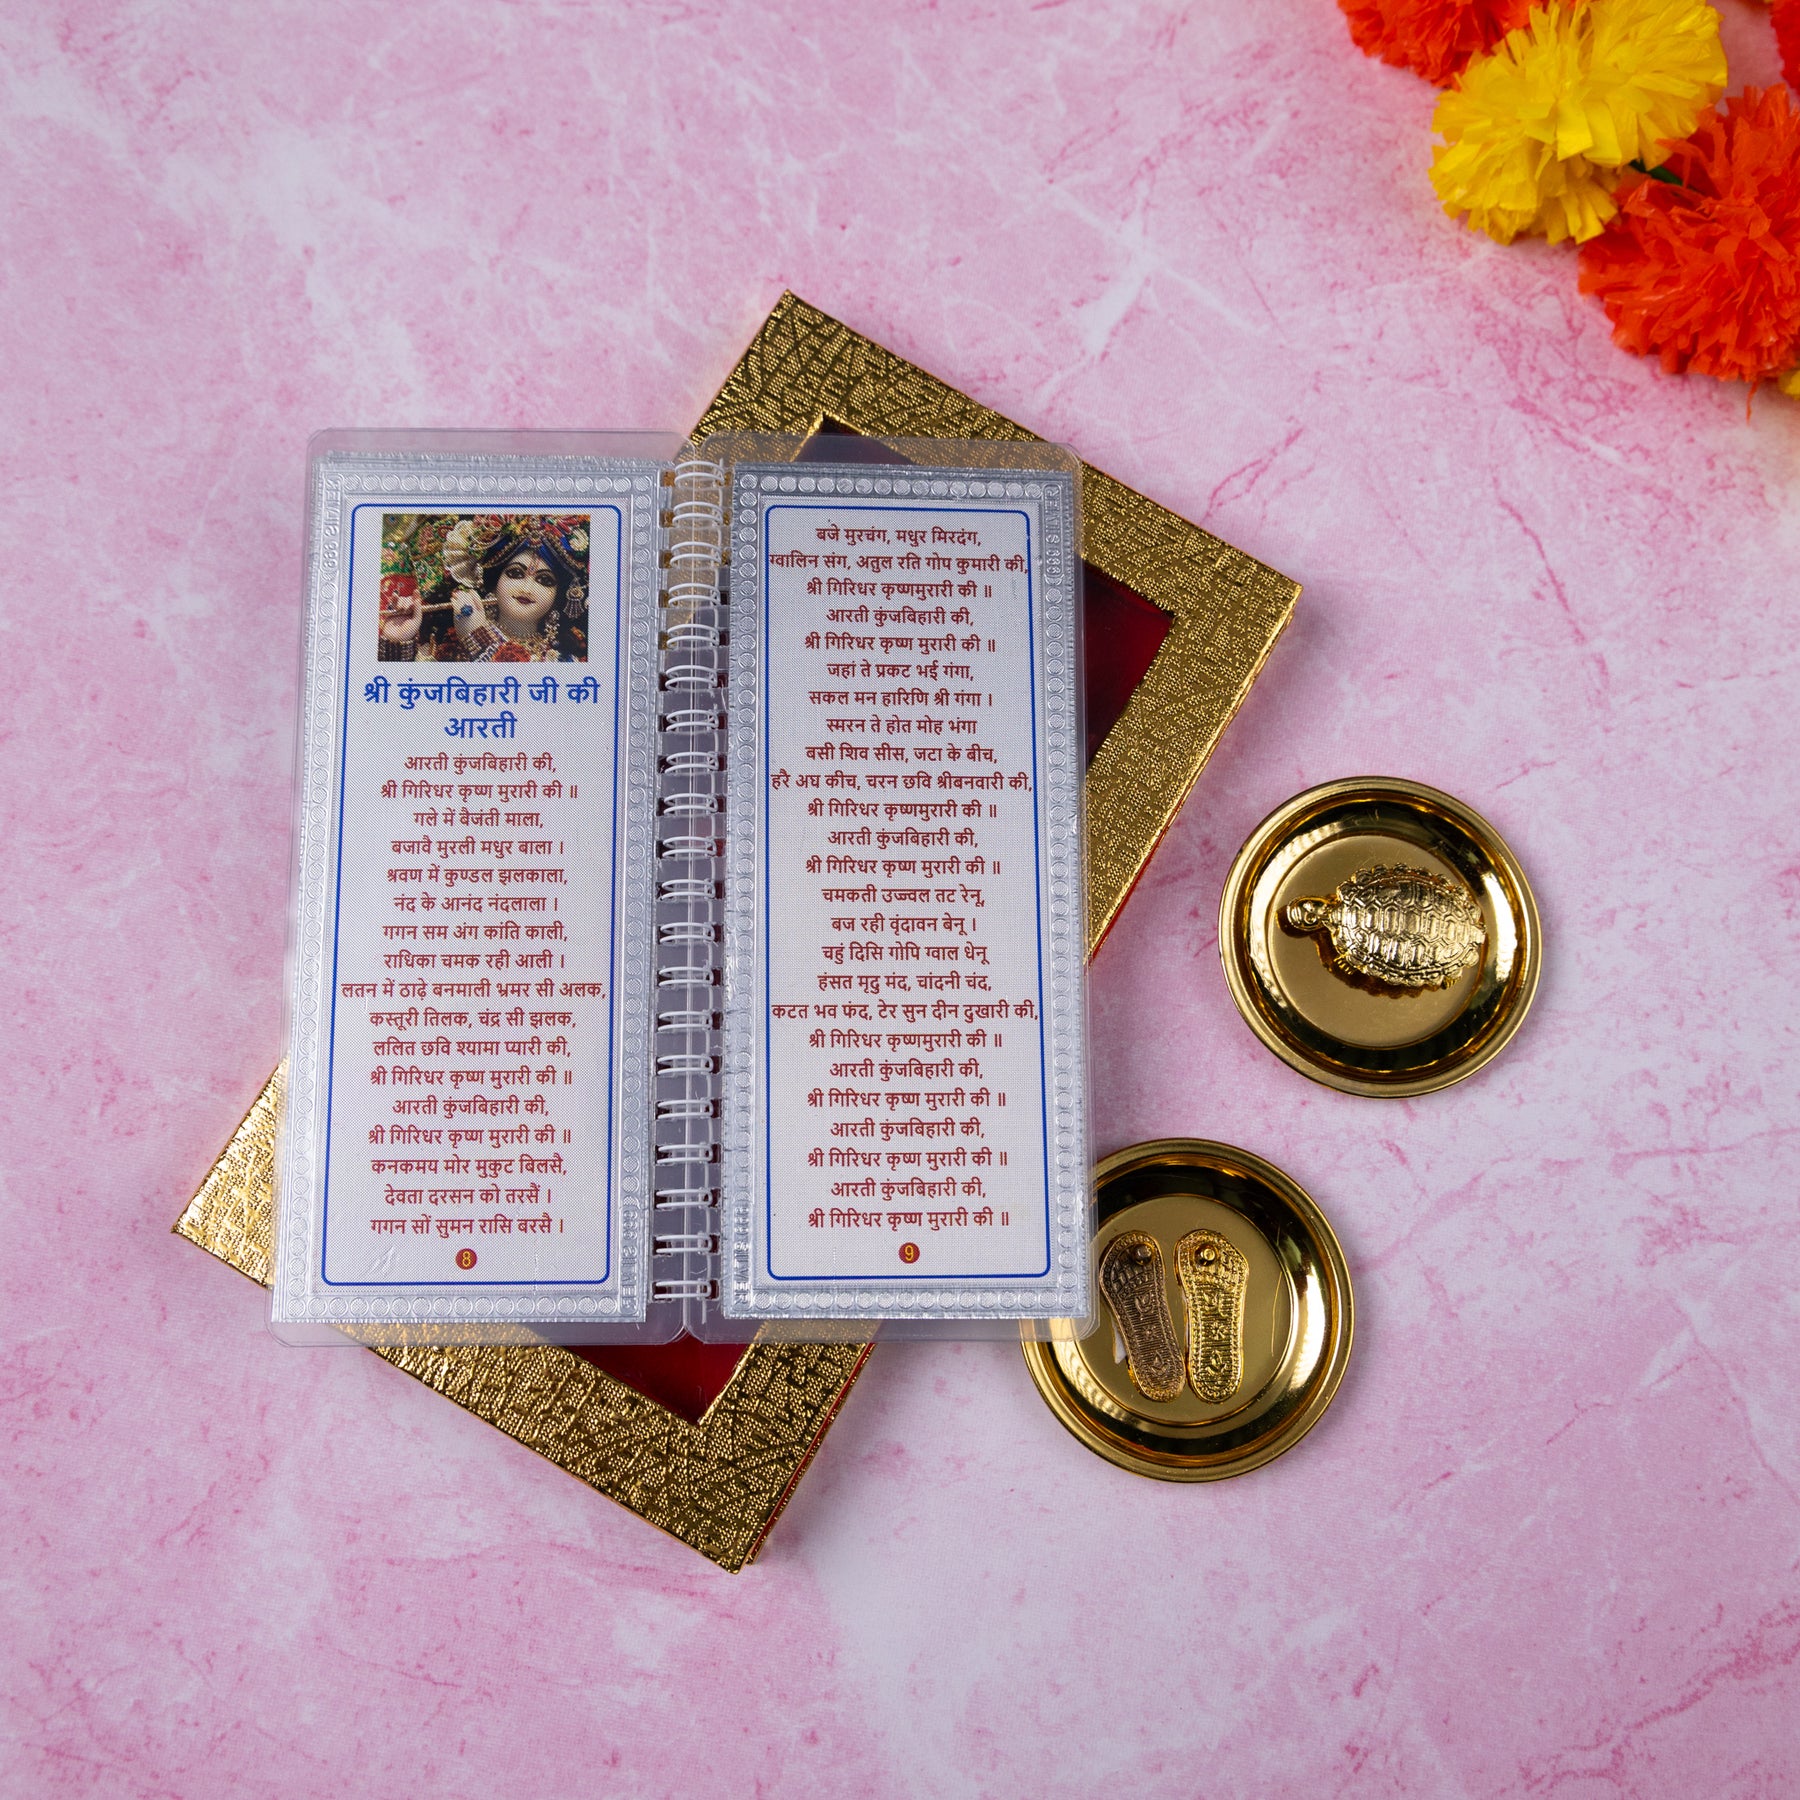 श्री कुंजबिहारी जी की
आरती
आरती कुंजबिहारी की,
श्री गिरिधर कृष्ण मुरारी की ॥
गले में बैजंती माला,
बजावै मुरली मधुर बाला ।
श्रवण में कुण्डल झलकाला,
नंद के आनंद नंदलाला ।
गगन सम अंग कांति काली,
राधिका चमक रही आली ।
लतन में ठाढ़े बनमाली भ्रमर सी अलक,
कस्तूरी तिलक, चंद्र सी झलक,
ललित छवि श्यामा प्यारी की,
श्री गिरिधर कृष्ण मुरारी की ॥
आरती कुंजबिहारी की,
श्री गिरिधर कृष्ण मुरारी की ॥
कनकमय मोर मुकुट बिलसै,
देवता दरसन को तरसैं ।
गगन सों सुमन रासि बरसै ।
8
बजे मुरचंग, मधुर मिरदंग,
ग्वालिन संग, अतुल रति गोप कुमारी की,
श्री गिरिधर कृष्णमुरारी की ॥
आरती कुंजबिहारी की,
श्री गिरिधर कृष्ण मुरारी की ॥
जहां ते प्रकट भई गंगा,
सकल मन हारिणि श्री गंगा ।
स्मरन ते होत मोह भंगा
बसी शिव सीस, जटा के बीच,
हरै अघ कीच, चरन छवि श्रीबनवारी की,
श्री गिरिधर कृष्णमुरारी की ॥
आरती कुंजबिहारी की,
श्री गिरिधर कृष्ण मुरारी की ॥
चमकती उज्ज्वल तट रेनू,
बज रही वृंदावन बेनू ।
चहुं दिसि गोपि ग्वाल धेनू
हंसत मृदु मंद, चांदनी चंद,
कटत भव फंद, टेर सुन दीन दुखारी की,
श्री गिरिधर कृष्णमुरारी की ॥
आरती कुंजबिहारी की,
श्री गिरिधर कृष्ण मुरारी की ॥
आरती कुंजबिहारी की,
श्री गिरिधर कृष्ण मुरारी की ॥
आरती कुंजबिहारी की,
श्री गिरिधर कृष्ण मुरारी की ॥
9